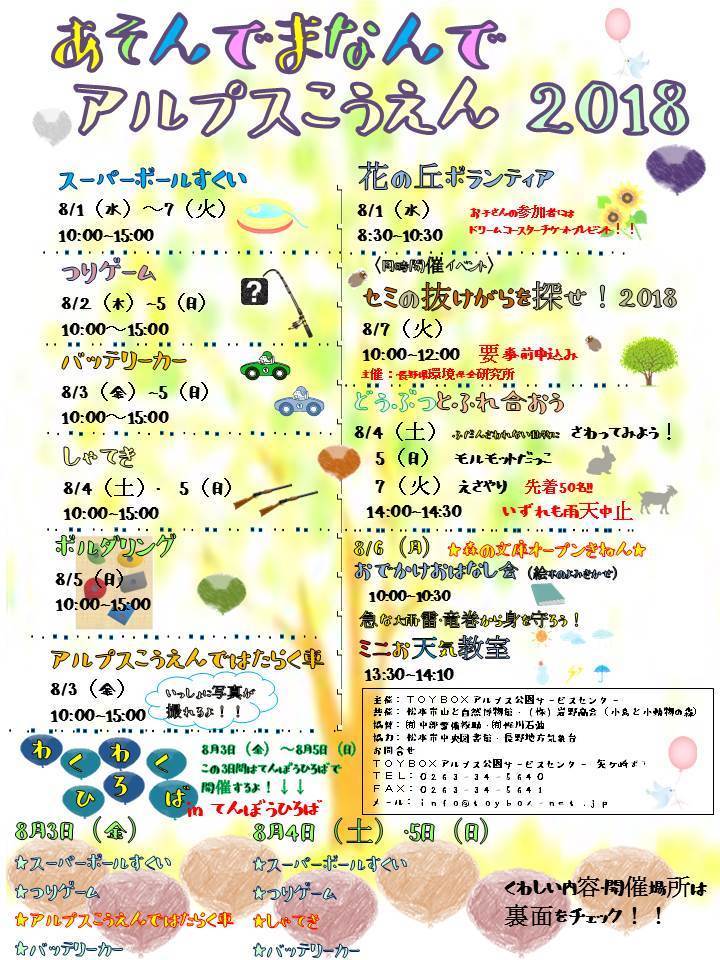 あそんでまなんで
アルプスこうえん 2018
スーパーボールすくい
8/1（水）～7（火）
10:00~15:00
つりゲーム
8/2（木）~5（日）
10:00～15:00
バッテリーカー
8/3（金）~5（日）
10:00～15:00
しゃてき
8/4（土）・ 5（日）
10:00~15:00
ボルダリング
8/5（日）
10:00~15:00
アルプスこうえんではたらく車
8/3（金）
いっしょに写真が
撮れるよ！！
花の丘ボランティア
8/1（水）
8:30~10:30
お子さんの参加者には
ドリームコースターチケットプレゼント！！
〈同時開催イベント〉
セミの抜けがらを探せ！2018
8/7（火）
10:00~12:00 要事前申込み
主催：長野県環境保全研究所
どうぶつとふれ合おう
8/4（土） ふだんさわれない動物に さわってみよう！
5（日） モルモットだっこ
7（火） えさやり 先着50名!!
14:00~14:30 いずれも雨天中止
8/6（月） ★森の文庫オープンきねん★
おでかけおはなし会（絵本のよみきかせ）
10:00~10:30
急な大雨・雷・竜巻から身を守ろう！
ミニお天気教室
13:30~14:10
主催：ＴＯＹＢＯＸアルプス公園サービスセンター
共催：松本市山と自然博物館・（株）岩野商会（小鳥と小動物の森）
協賛：㈲中部警備保助・㈲梓川石油
協力：松本市中央図書館・長野地方気象台
お問合せ
ＴＯＹＢＯＸアルプス公園サービスセンター 矢ケ崎まで
ＴＥＬ：０２６３－３４－５６４０
ＦＡＸ：０２６３－３４－５６４１
メール：ｉｎｆｏ＠ｔｏｙｂｏｘ－ｎｅｔ．ｊｐ
わくわく
ひろば
8月3日（金）～8月5日（日）
この3日間はてんぼうひろばで
開催するよ！↓↓
in てんぼうひろば
8月3日（金）
★スーパーボールすくい
★つりゲーム
★アルプスこうえんではたらく車
★バッテリーカー
8月4日（土）・5日（日）
★スーパーボールすくい
★つりゲーム
★しゃてき
★バッテリーカー
くわしい内容・開催場所は
裏面をチェック！！